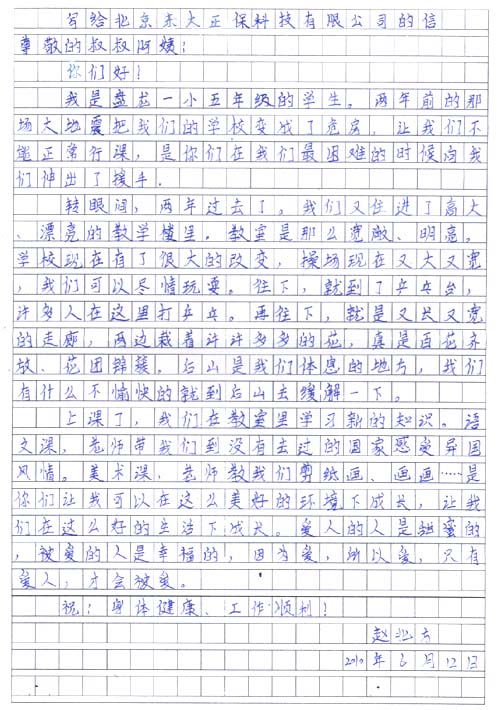 写给北京东大正保科技有限公司的信
尊敬的叔叔阿姨：
你们好！
我是盘龙一小五年级的学生。两年前的那
场大地震把我们的学校变成了危房，让我们不
能正常行课，是你们在我们最困难的时候向我
们伸出了援手.
转眼间，两年过去了。我们又住进了高大
、漂亮的教学楼里。教室是那么宽敞、明亮。
学校现在有了很大的改变，操场现在又大又宽
，我们可以尽情玩耍。往下，就到了乒乓台，
许多人在这里打乒乓。再往下，就是又长又宽
的走廊，两边栽着许许多多的花，真是百花齐
放、花团锦簇。后山是我们休息的地方，我们
有什么不愉快的就到后山去缓解一下。
上课了，我们在教室里学习新的知识。语
文课，老师带我们到没有去过的国家感受异国
风情。美术课，老师教我们剪纸画、画画……是
你们让我可以在这么美好的环境下成长，让我
们在这么好的生活下成长。爱人的人是甜蜜的
，被爱的人是幸福的，因为爱，所以爱，只有
爱人，才会被爱。
祝：身体健康、工作顺利！
赵北方
2010年6月12日